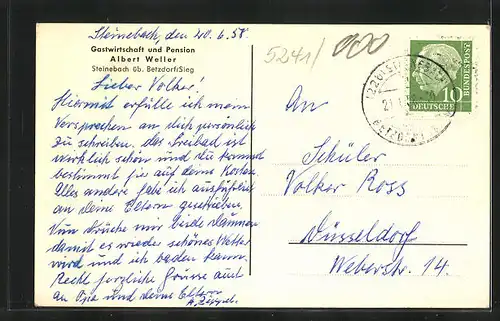 Steinebach, den 20.6.58.
Gastwirtschaft und Pension
Albert Weller
Steinebach üb. Betzdorf/Sieg
Lieber Volker!
Hiermit erfülle ich mein
Versprechen an dich persönlich
zu schreiben. das Freibad ist
wirklich schön und du kommst
bestimmt hie auf deine Kosten.
Alles andere habe ich ausführlich
an deine Eltern geschrieben.
Nun drücke mir beide Daumen
damit es wieder schönes Wetter
wird und ich baden kann.
Recht herzliche Grüsse auch
an Opa und deine Eltern
5241/000
DEUTSCHE
BUNDESPOST
10
An
Schüler
Volker Ross
Düsseldorf
Weberstr. 14.